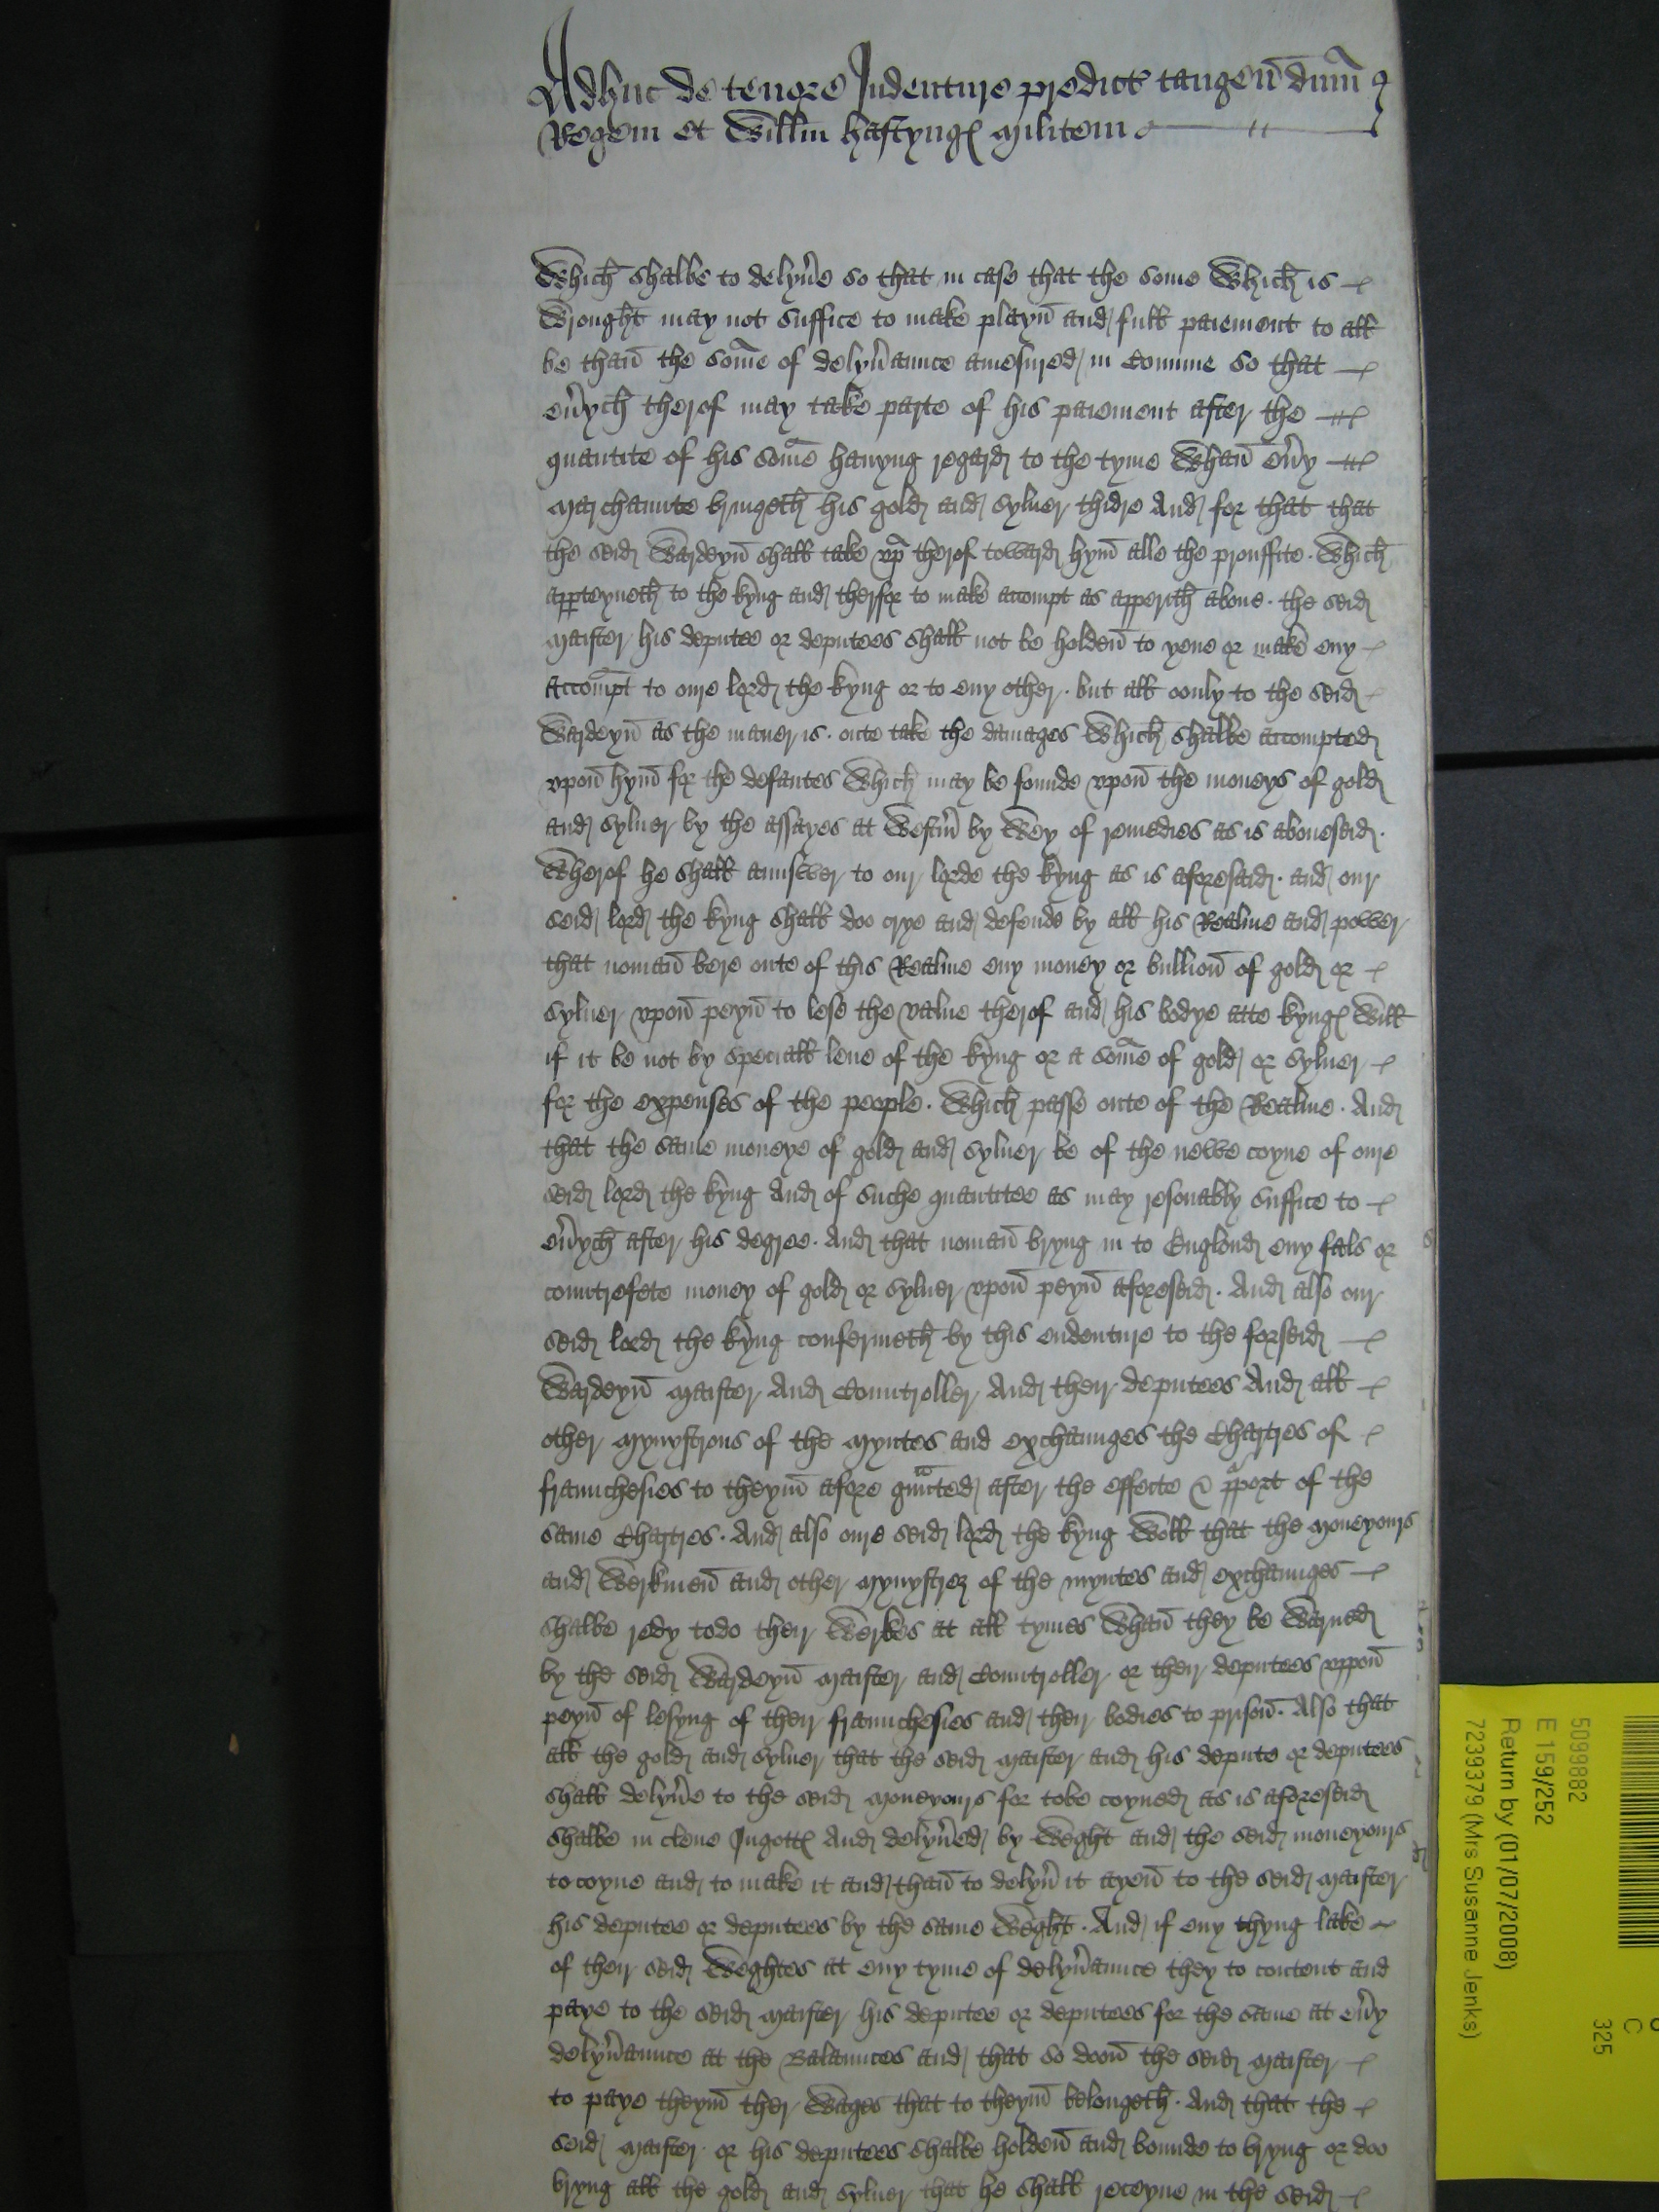 Adhuc de tenore Indenture predict tangen dnm
Regem et Willm hastyngs militem
Which shalbe to delyũe so that in case that the some Which is
Wrought may not suffice to make playn and full paiement to all
be than the some of delyũaunce amesured in Comune so that
eũych therof may take parte of his paiement after the
quantite of his some hauyng regard to the tyme Whan eũy
marchaunte bringeth his gold and syluer thidre And for that that
the seid Wardeyn shall take vp therof toward hym alle the prouffite. Which
apperteyneth to the kyng and therfor to make accompt as apperith aboue. the seid
maister his deputee or deputees shall not be holden to yeue or make eny
accompt to oure lord the kyng or to eny other. but all oonly to the seid
Wardeyn as the maner is. oute take the damages Which shalbe accompted
vpon hym for the defautes Which may be founde vpon the moneys of gold
and syluer by the assayes at Westm̃ by Wey of remedies as is aboueseid.
Wherof he shall aunswer to our lorde the kyng as is aforesaid. and our
seid lord the kyng shall doo crye and defende by all his Realme and power
that noman bere oute of this Realme eny money or bullion of gold or
syluer vpon peyn to lese the value therof and his bodye atte kyngs Will
if it be not by speciall leue of the kyng or a some of gold or syluer
for the expenses of the people. Which passe oute of the Realme. And
that the same moneye of gold and syluer be of the newe coyne of oure
seid lord the kyng And of suche quantitee as may resonably suffice to
eũych after his degree. And that noman bryng in to Englond eny fals or
countrefete money of gold or syluer vpon peyn aforeseid. And also our
seid lord the kyng confermeth by this endenture to the forseid
Wardeyn maister And Countroller And their deputees And all
other mynystrours of the myntes and exchaunges the Chartres of
fraunchesies to theym afore gũnted after the effecte & pport of the
same Chartres. And also oure seid lord the kyng Woll that the moneyours
and Werkmen and other mynystres of the myntes and exchaunges
shalbe redy todo their Werkes at all tymes Whan they be Warned
by the seid Wardeyn maister and Countroller or their deputees vppon
peyn of lesyng of their fraunchesies and their bodies to prison. Also that
all the gold and syluer that the seid maister and his depute or deputees
shall delyũe to the seid moneyours for tobe coyned as is aforeseid
shalbe in clene Ingotts And delyũed by Weght and the seid moneyours
to coyne and to make it and than to delyũ it ayen to the seid maister
his deputee or deputees by the same Weght. And if eny thyng lake
of their seid Weghtes at eny tyme of delyũaunce they to content and
paye to the seid maister his deputee or deputees for the same at eũy
delyũaunce at the Balaunces and that so doon the seid maister
to paye theym ther Wages that to theym belongeth. And that the
seid maister or his deputees shalbe holden and bounde to bryng or doo
bryng all the gold and syluer that he shall receyue in the seid
5099882
E 159/252
Return by (01/07/2008)
7239379 (Mrs Susanne Jenks)
C
325